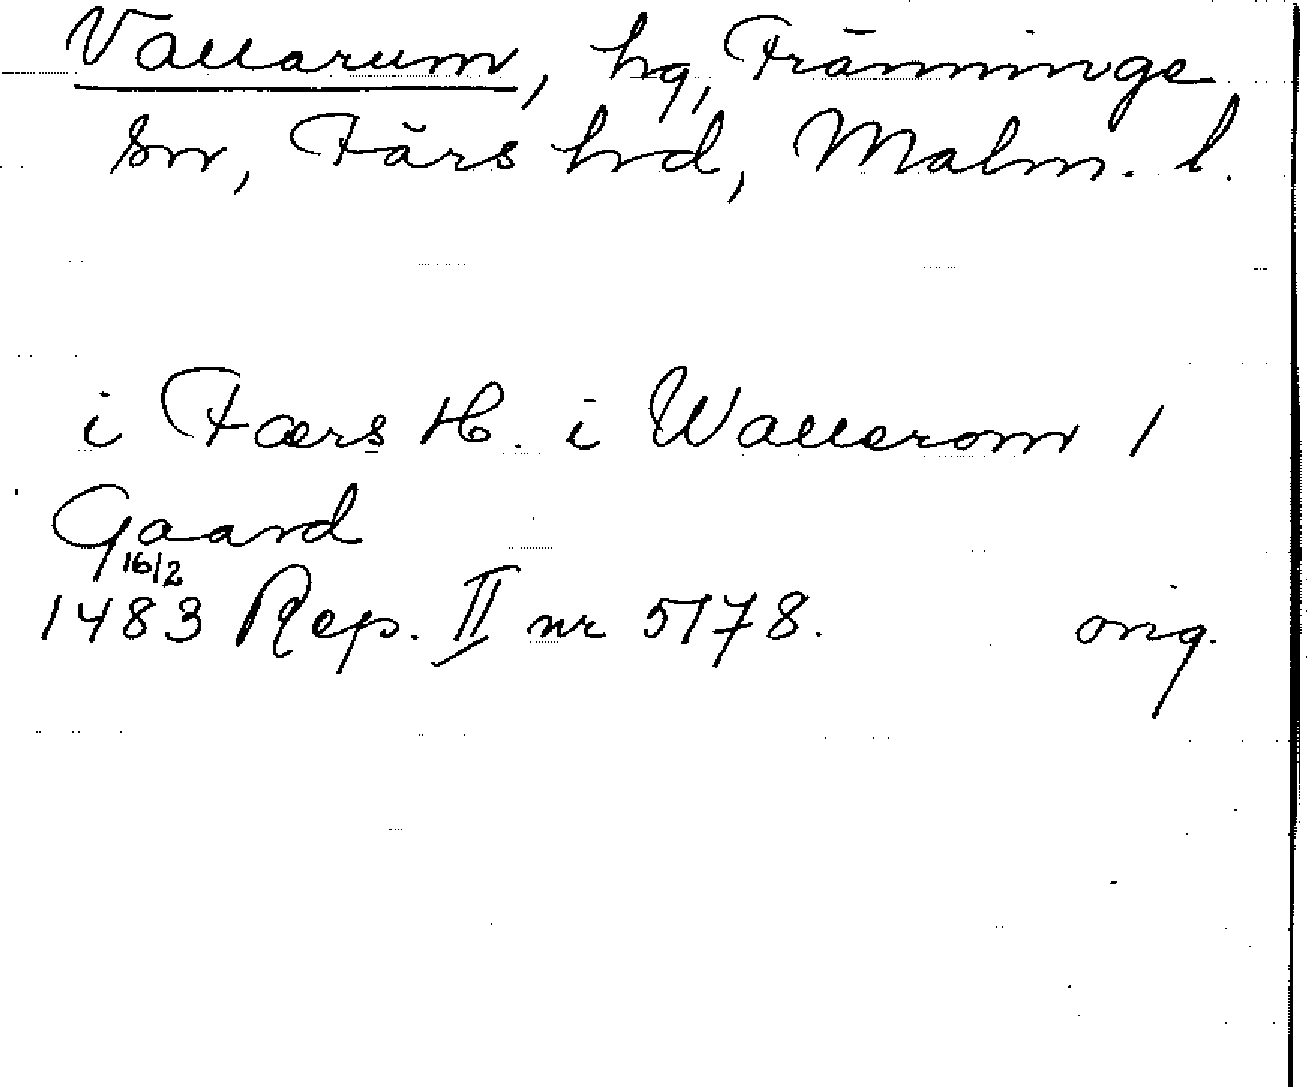 Vallarum, hg, Fränninge
sn, Färs hrd, Malm. l.
i Færs H. i Wallerom 1
Gaard
16/2
1483 Rep. II nr 5178. orig.